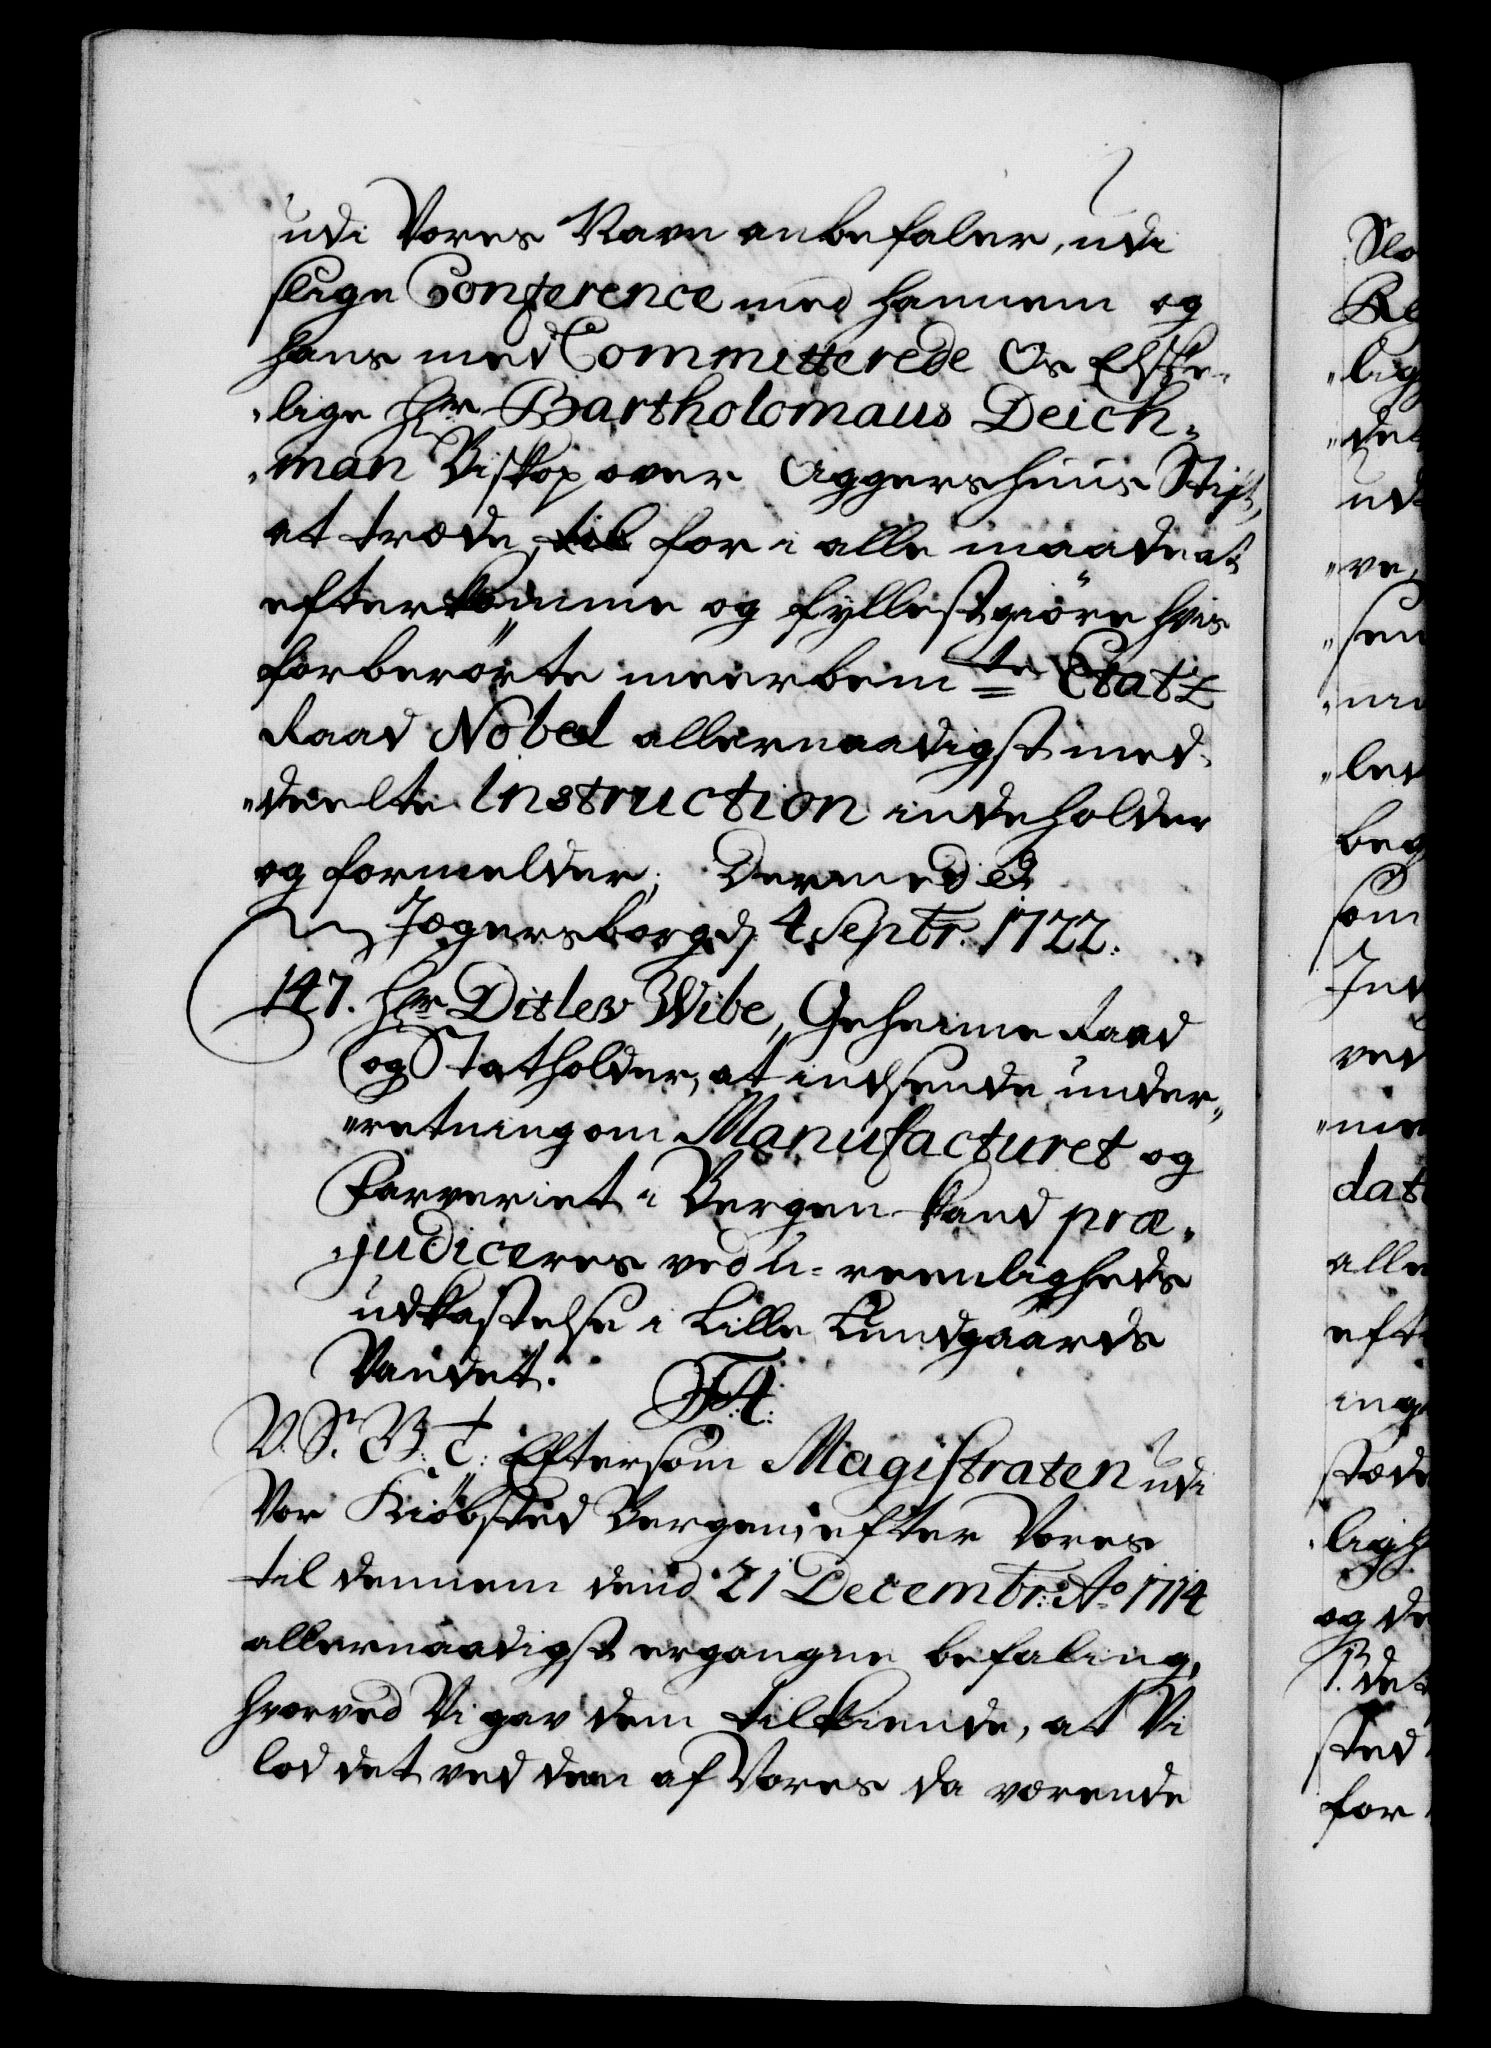 udi Vores Navn anbefaler, udi
slige Conference med hannem og
hans med Committerede Os Elske-
"lige Hr Bartholomæus Deich-
"man Biskop over Aggershuus Stift,
at træde, til for i alle maade at
efterkomme og fyllestgiøre hvis
forberørte meerbemte Etatz
Raad Nobel allernaadigst med-
"deelte Instruction indeholder
og formelder; Dermed &
Jægersborg d. 4 Septr. 1722.
147. Hr Ditlev Wibe, Geheime Raad
og Statholder, at indsende under-
"retning om Manufacturet og
Farveriet i Bergen kand præ-
"judiceres ved U-reenligheds
udkastelse i Lille Lundgaards
Vandet.
F4.
V. S. G. B. T: Eftersom Magistraten udi
Vor Kiøbsted Bergen, efter Vores
til dennem dend 21 Decembr: Ao 1714
allernaadigst ergangne befaling,
hvorved Vi gav dem tilkiende, at Vi
lod det ved den af Vores da værende